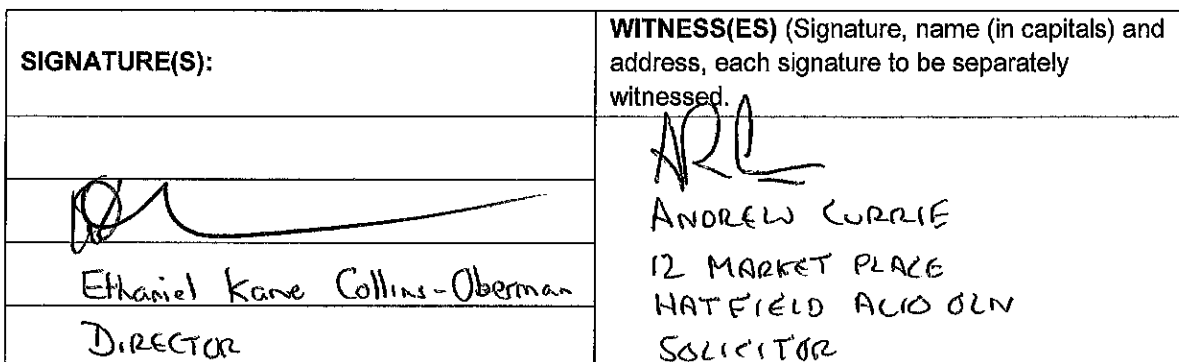 SIGNATURE(S):
WITNESS(ES) (Signature, name (in capitals) and
address, each signature to be separately
witnessed.
ARC
Ethaniel Kane Collins-Oberman
DIRECTOR
ANDREW CURRIE
12 MARKET PLACE
HATFIELD AL10 0LN
SOLICITOR